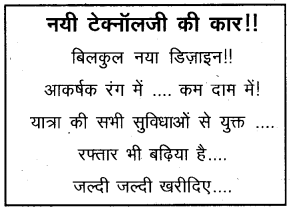 नयी टेक्नॉलजी की कार!!
बिलकुल नया डिज़ाइन!!
आकर्षक रंग में .... कम दाम में!
यात्रा की सभी सुविधाओं से युक्त ....
रफ्तार भी बढ़िया है....
जल्दी जल्दी खरीदिए....